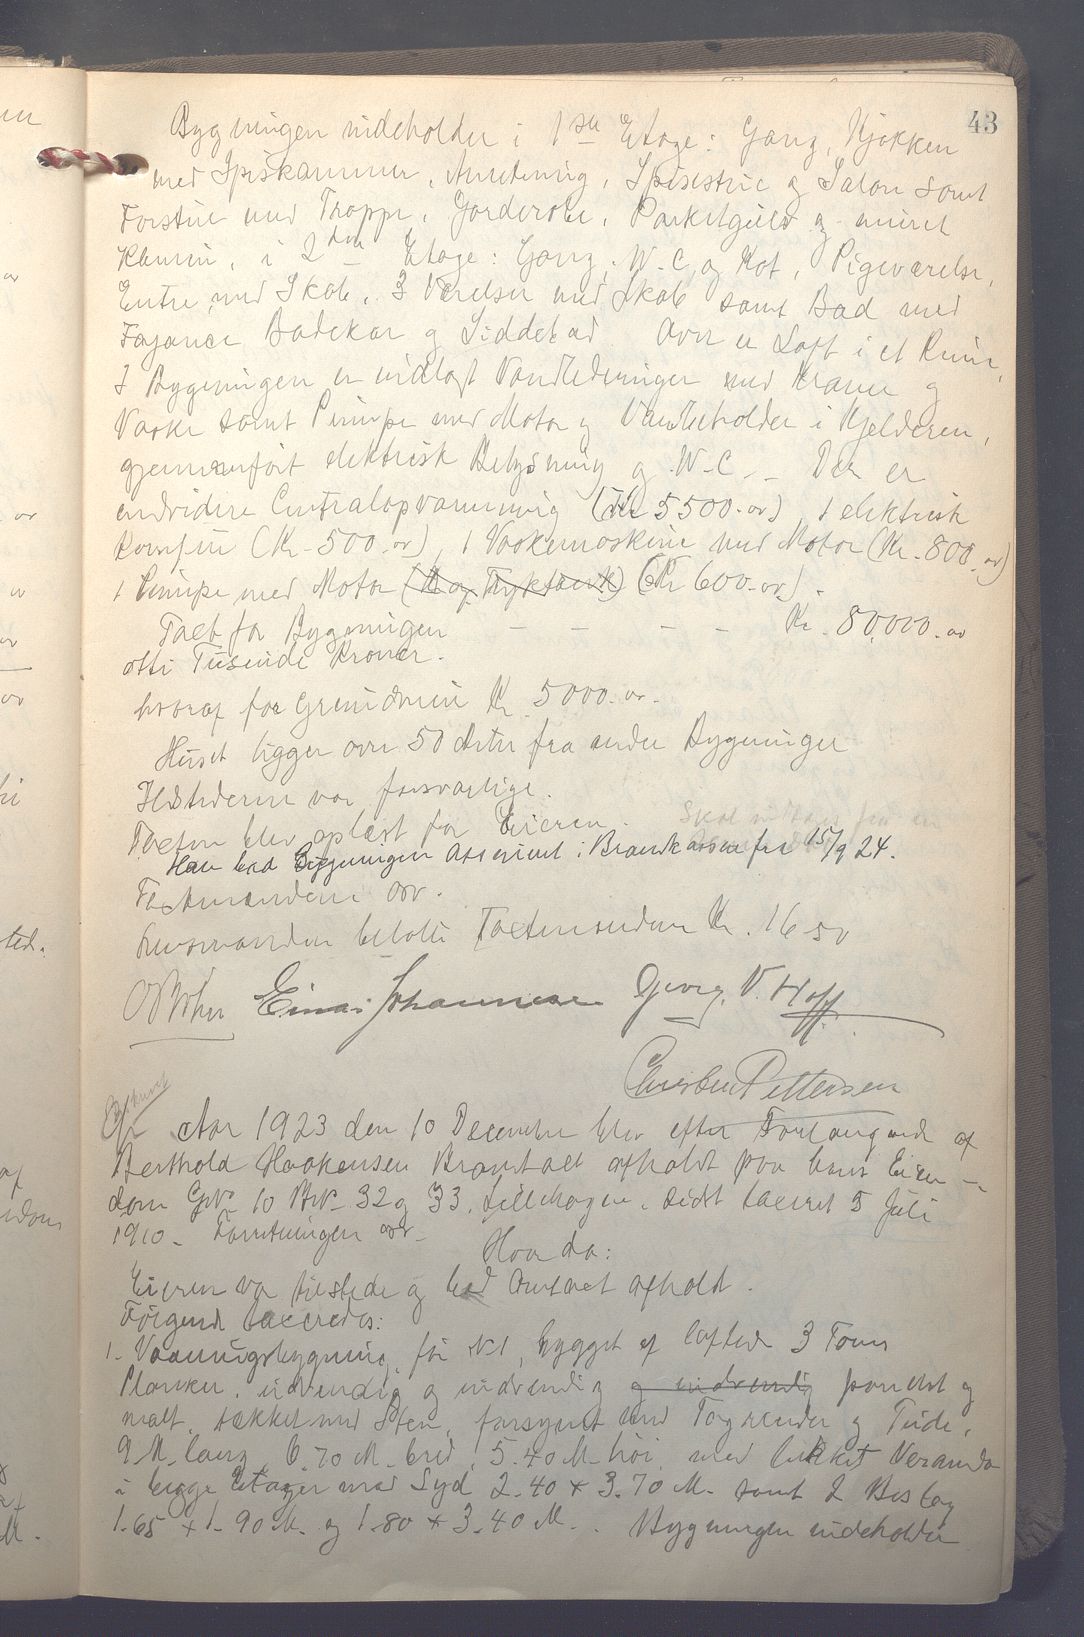 43
Bygningen indeholder i 1ste Etage: Gang, Kjøkken
med Spiskammer, Anretning, Spisestue og Salon samt
Forstue med Trappe, Garderobe, Parketgulv og muret
Kamin, i 2den Etage: Gang, W-C og Kot, Pigeværelse,
Entre med Skab, 3 Værelser med Skab samt Bad med
Fajance Badekar og Siddebad. Over er Loft i et Rum,
I Bygningen er indlagt Vandledninger med Kraner og
Vaske samt Pumpe med Motor og Vandbeholder i Kjelderen,
gjennemført elektrisk Belysning og W-C. - Der er
endvidere Centralopvarmning (Kr 5500.or), 1 elektrisk
Komfur (Kr. 500.or), 1 Vaskemaskine med Motor (Kr. 800.or)
1 Pumpe med Motor (Kr 600.or).
Taxt for Bygningen - - - - Kr. 80,000.or
otti Tusinde Kroner.
hvoraf for Grundmur Kr 5000.or.
Huset ligger over 50 Meter fra andre Bygninger
Ildstederne var forsvarlige.
Taxten blev oplæst for Eieren.
Skal fra
Han bad Bygningen assureret i Brandkassen fra 15/9 24.
Taxtmændene oov.
Lensmanden betalte Taxtmændene Kr. 16 50
Einar Johannesen Georg. V. Hoff
Christen Pettersen
Aar 1923 den 10 December blev efter Forlangende af
Berthold Haakensen Brandtaxt afholdt paa hans Eien-
dom Gno 10 Bno 32 og 33, Lillehagen, sidst taxeret 5 Juli
1910 - Forretningen oov -
Hvorda:
Eieren var tilstede og bad Omtaxt afholdt.
Følgende taxeredes:
1. Vaaningsbygning, før No 1, bygget af laftede 3 Toms
Planker, udvendig og indvendig og indvendig panelet og
malt, tækket med Sten, forsynet med Tagrender og Tude,
9 M. lang, 6.70 M. bred, 5.40 M. høi, med lukket Veranda
i begge Etager mod Syd 2.40 x 3.70 M. samt 2 Bislag
1.65 x 1.90 M. og 1.80 x 3.40 M. . Bygningen indeholder